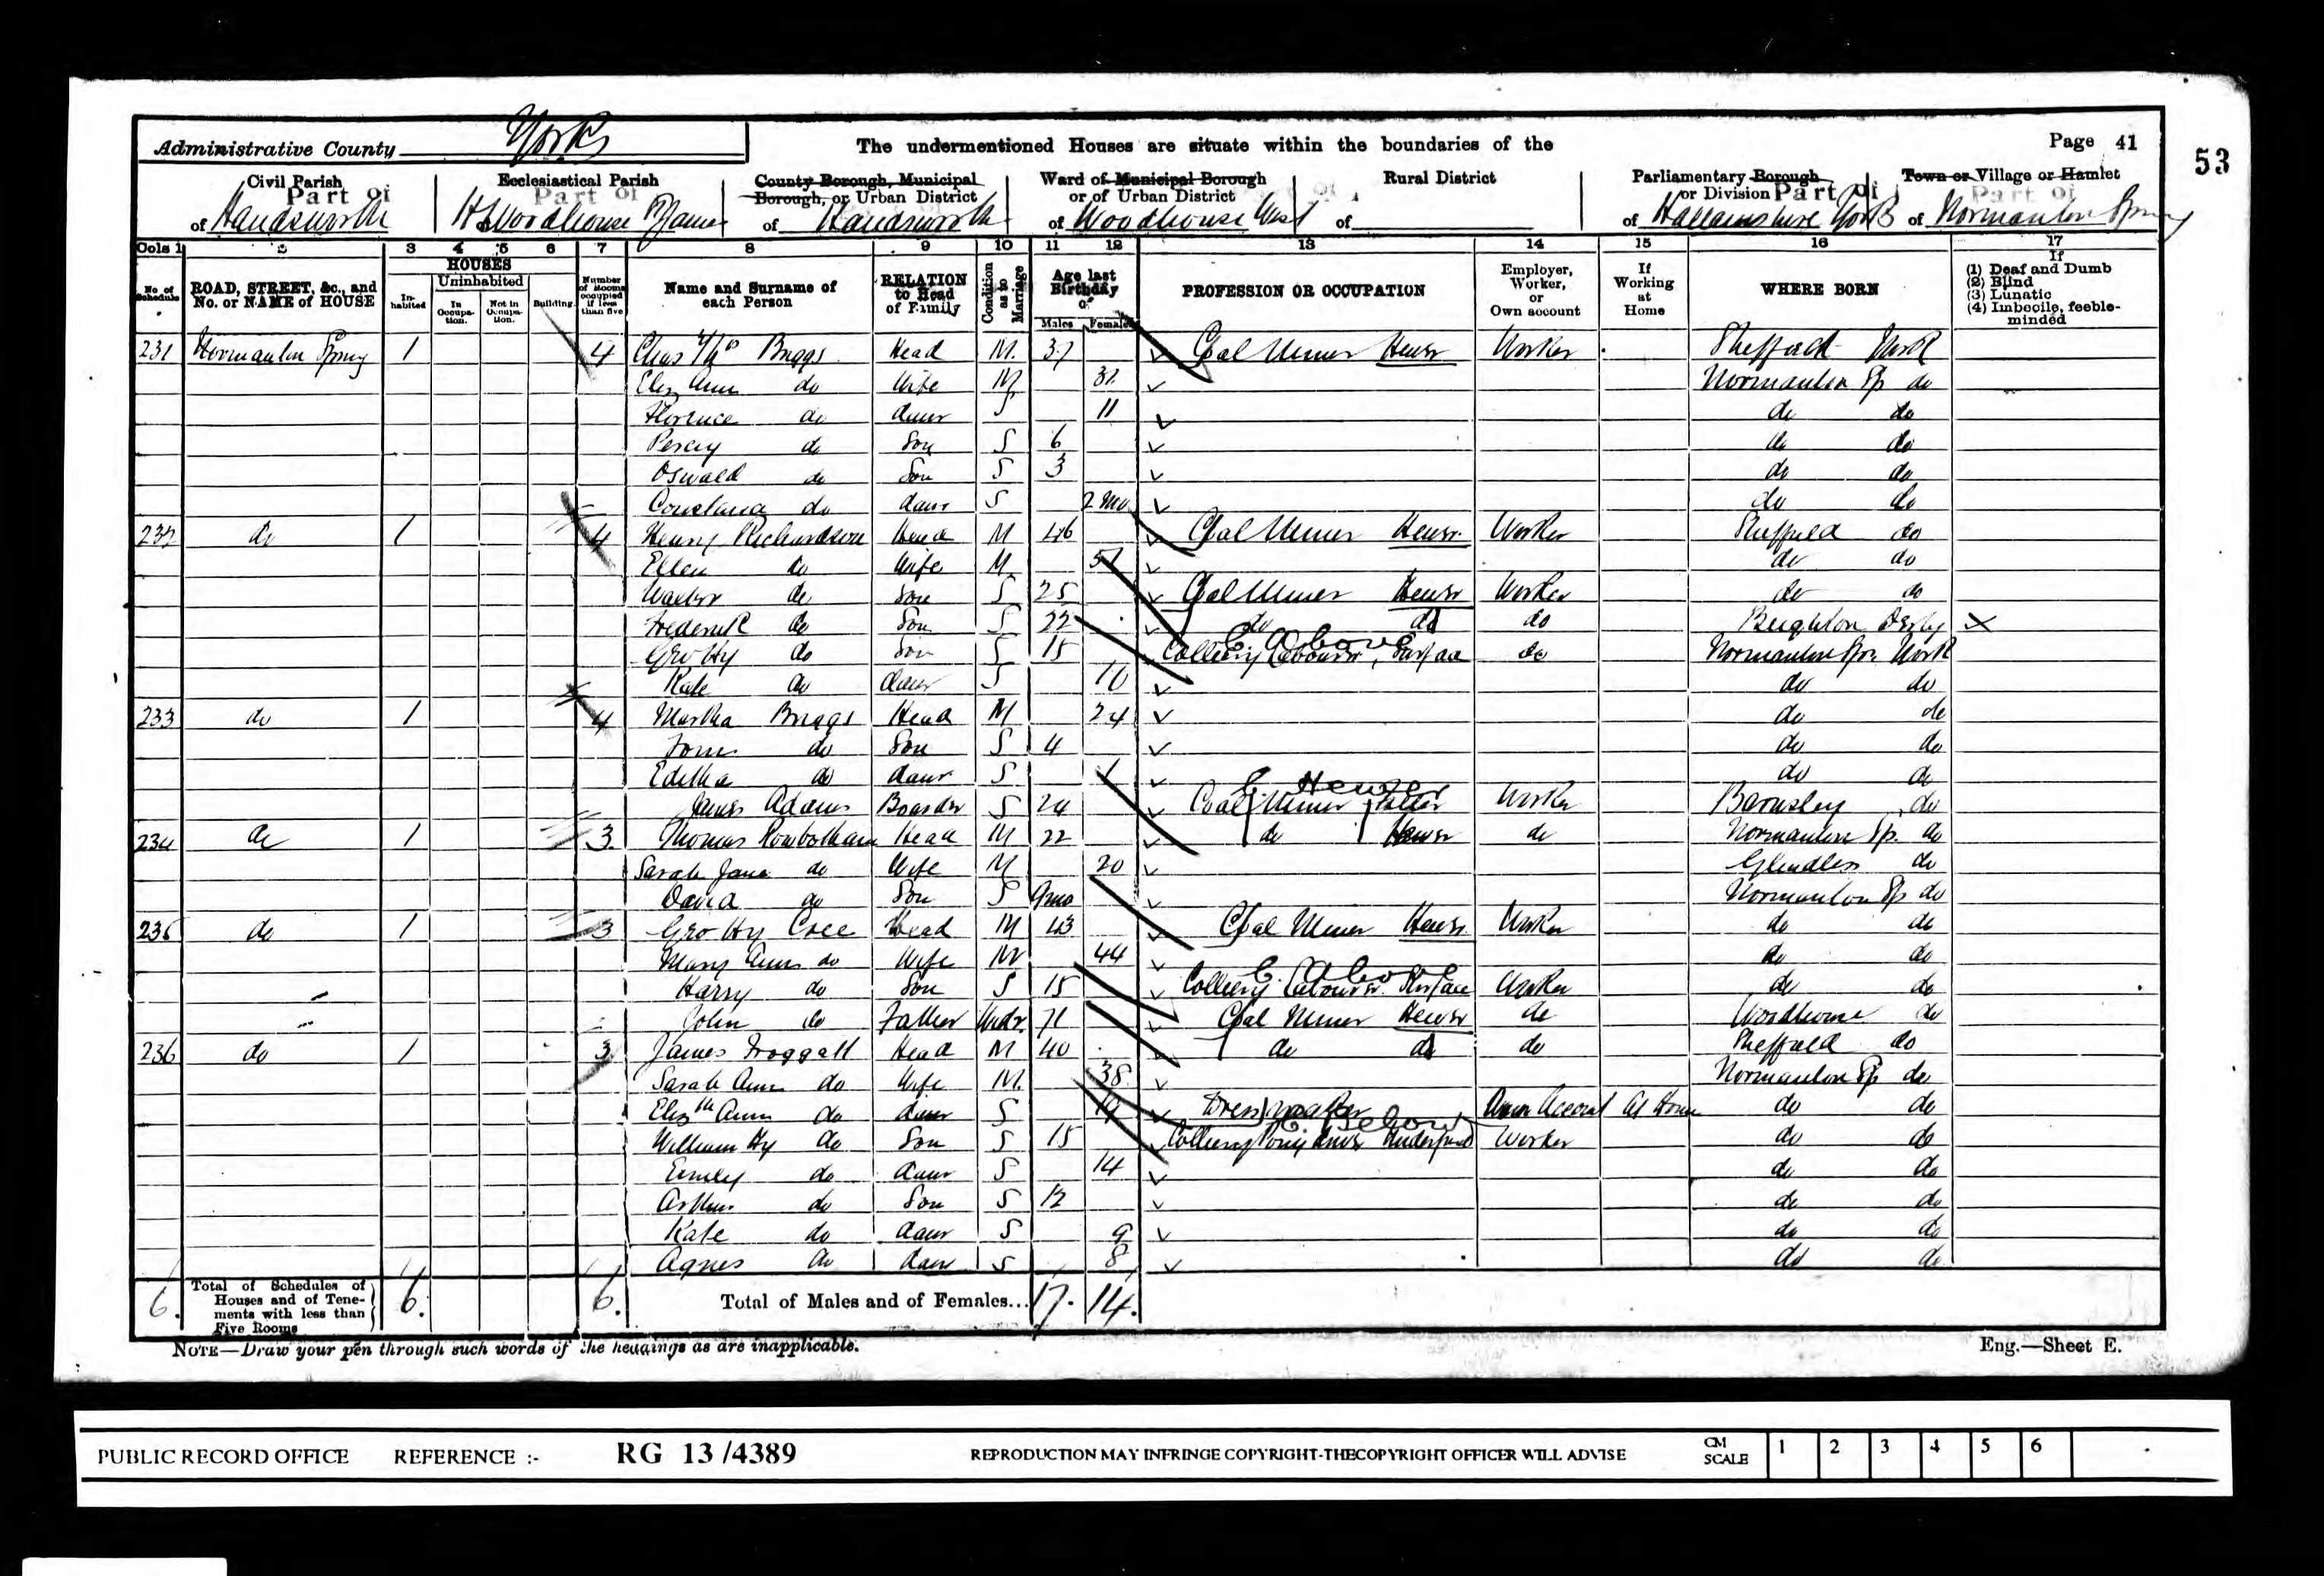 Administrative County Yorks The undermentioned Houses are situate within the boundaries of the Page 41
53
Civil Parish Part of of Handsworth
Ecclesiastical Parish Part of Woodhouse St James
County Borough, Municipal Borough, or Urban District of Handsworth
Ward of Municipal Borough or of Urban District of Woodhouse West
Rural District of
Parliamentary Borough or Division Part of of Hallamshire York
Town or Village or Hamlet Part of of Normanton Spring
Cols 1 2 3 4 5 6 7 8 9 10 11 12 13 14 15 16 17
No. of Schedule
ROAD, STREET, &c., and No. or NAME of HOUSE
HOUSES
Inhabited
Uninhabited
In Occupation.
Not in Occupation.
Building
Number of Rooms occupied if less than five
Name and Surname of each Person
RELATION to Head of Family
Condition as to Marriage
Age last Birthday of
Males Females
PROFESSION OR OCCUPATION
Employer, Worker, or Own account
If Working at Home
WHERE BORN
If
(1) Deaf and Dumb
(2) Blind
(3) Lunatic
(4) Imbecile, feeble-minded
231 Normanton Spring 1 4 Chas Briggs Head M 37 Coal Miner Hewer Worker Sheffield York
Eliz Ann do Wife M 31 Normanton Sp do
Florence do daur S 11 do do
Percy do Son S 6 do do
Oswald do Son S 3 do do
Constance do daur S 2 mo do do
232 do 1 4 Henry Richardson Head M 46 Coal Miner Hewer Worker Sheffield do
Ellen do Wife M 51 do do
Walter do Son S 25 Coal Miner Hewer Worker do do
Frederick do Son S 22 do do do Beighton Derby X
Geo Hy do Son S 15 Colliery Labourer, Surface C. Above do Normanton Spr. York
Kate do daur S 10 do do
233 do 1 4 Martha Briggs Head M 24 do do
do Son S 4 do do
Editha do daur S 1 do do
James Adams Boarder S 24 Coal Miner C. Hewer Worker Barnsley do
234 do 1 3 Thomas Rowbotham Head M 22 do Hewer do Normanton Sp. do
Sarah Jane do Wife M 20 Gleadless do
David do Son S 9 mo Normanton Sp do
235 do 1 3 Geo Hy Cree Head M 43 Coal Miner Hewer Worker do do
Mary Ann do Wife M 44 do do
Harry do Son S 15 Colliery Labourer Surface C. Above Worker do do
John do Father Widr. 71 Coal Miner Hewer do Woodhouse do
236 do 1 3 James Froggatt Head M 40 do do do Sheffield do
Sarah Ann do Wife M 38 Normanton Sp do
Elizth Ann do daur S 19 Dressmaker Own Account At Home do do
William Hy do Son S 15 Colliery Pony driver Underground C. Below Worker do do
Emily do daur S 14 do do
Arthur do Son S 12 do do
Kate do daur S 9 do do
Agnes do daur S 8 do do
6. Total of Schedules of Houses and of Tenements with less than Five Rooms 6. 6. Total of Males and of Females... 17. 14.
NOTE—Draw your pen through such words of the headings as are inapplicable. Eng.—Sheet E.
PUBLIC RECORD OFFICE REFERENCE :- RG 13/4389 REPRODUCTION MAY INFRINGE COPYRIGHT-THE COPYRIGHT OFFICER WILL ADVISE CM SCALE 1 2 3 4 5 6